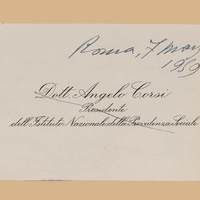 Roma, 7 mag
1959
Dott. Angelo Corsi
Presidente
dell'Istituto Nazionale della Previdenza Sociale